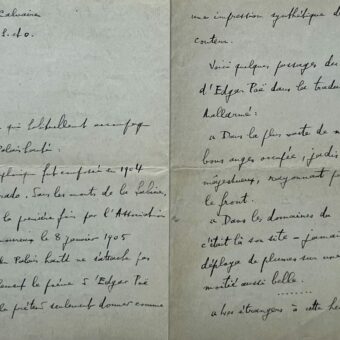 Calvaire
S. et O.
qui l'obtiennent accompag
Palais hanté:
fut composée en 1904
Sous les mots de la
la première fois par l'Association
le 8 janvier 1905
Le Palais hanté ne s'attache pas
le poème d'Edgar Poë
seulement donner comme
une impression synthétique de
contenu.
Voici quelques passages du
d'Edgar Poë dans la traduc
Mallarmé:
« Dans la plus verte de n
bons anges occupée, jadis
majestueux, rayonnant p
le front.
« Dans les domaines du
c'était là son site – jamais
déploya de plumes sur une
moitié aussi belle.
.........
étrangers à cette he